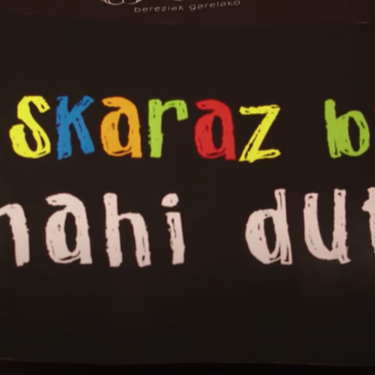 bereziak garelako
skaraz b
nahi dut